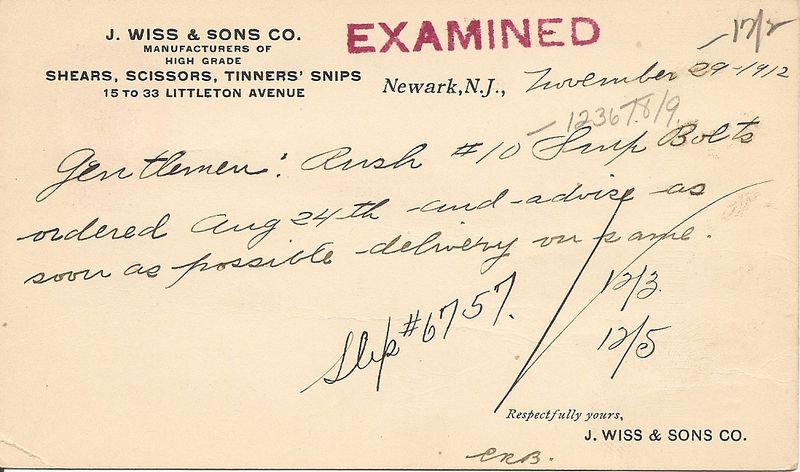 J. WISS & SONS CO.
MANUFACTURERS OF
HIGH GRADE
SHEARS, SCISSORS, TINNERS' SNIPS
15 TO 33 LITTLETON AVENUE
EXAMINED
12/2
Newark, N.J., November 29-1912
1236T.8/9.
Gentlemen: Rush #10 Snip Bolts
ordered Aug 24th and advise as
soon as possible delivery on same.
12/3
12/5
Slip #6757.
Respectfully yours,
J. WISS & SONS CO.